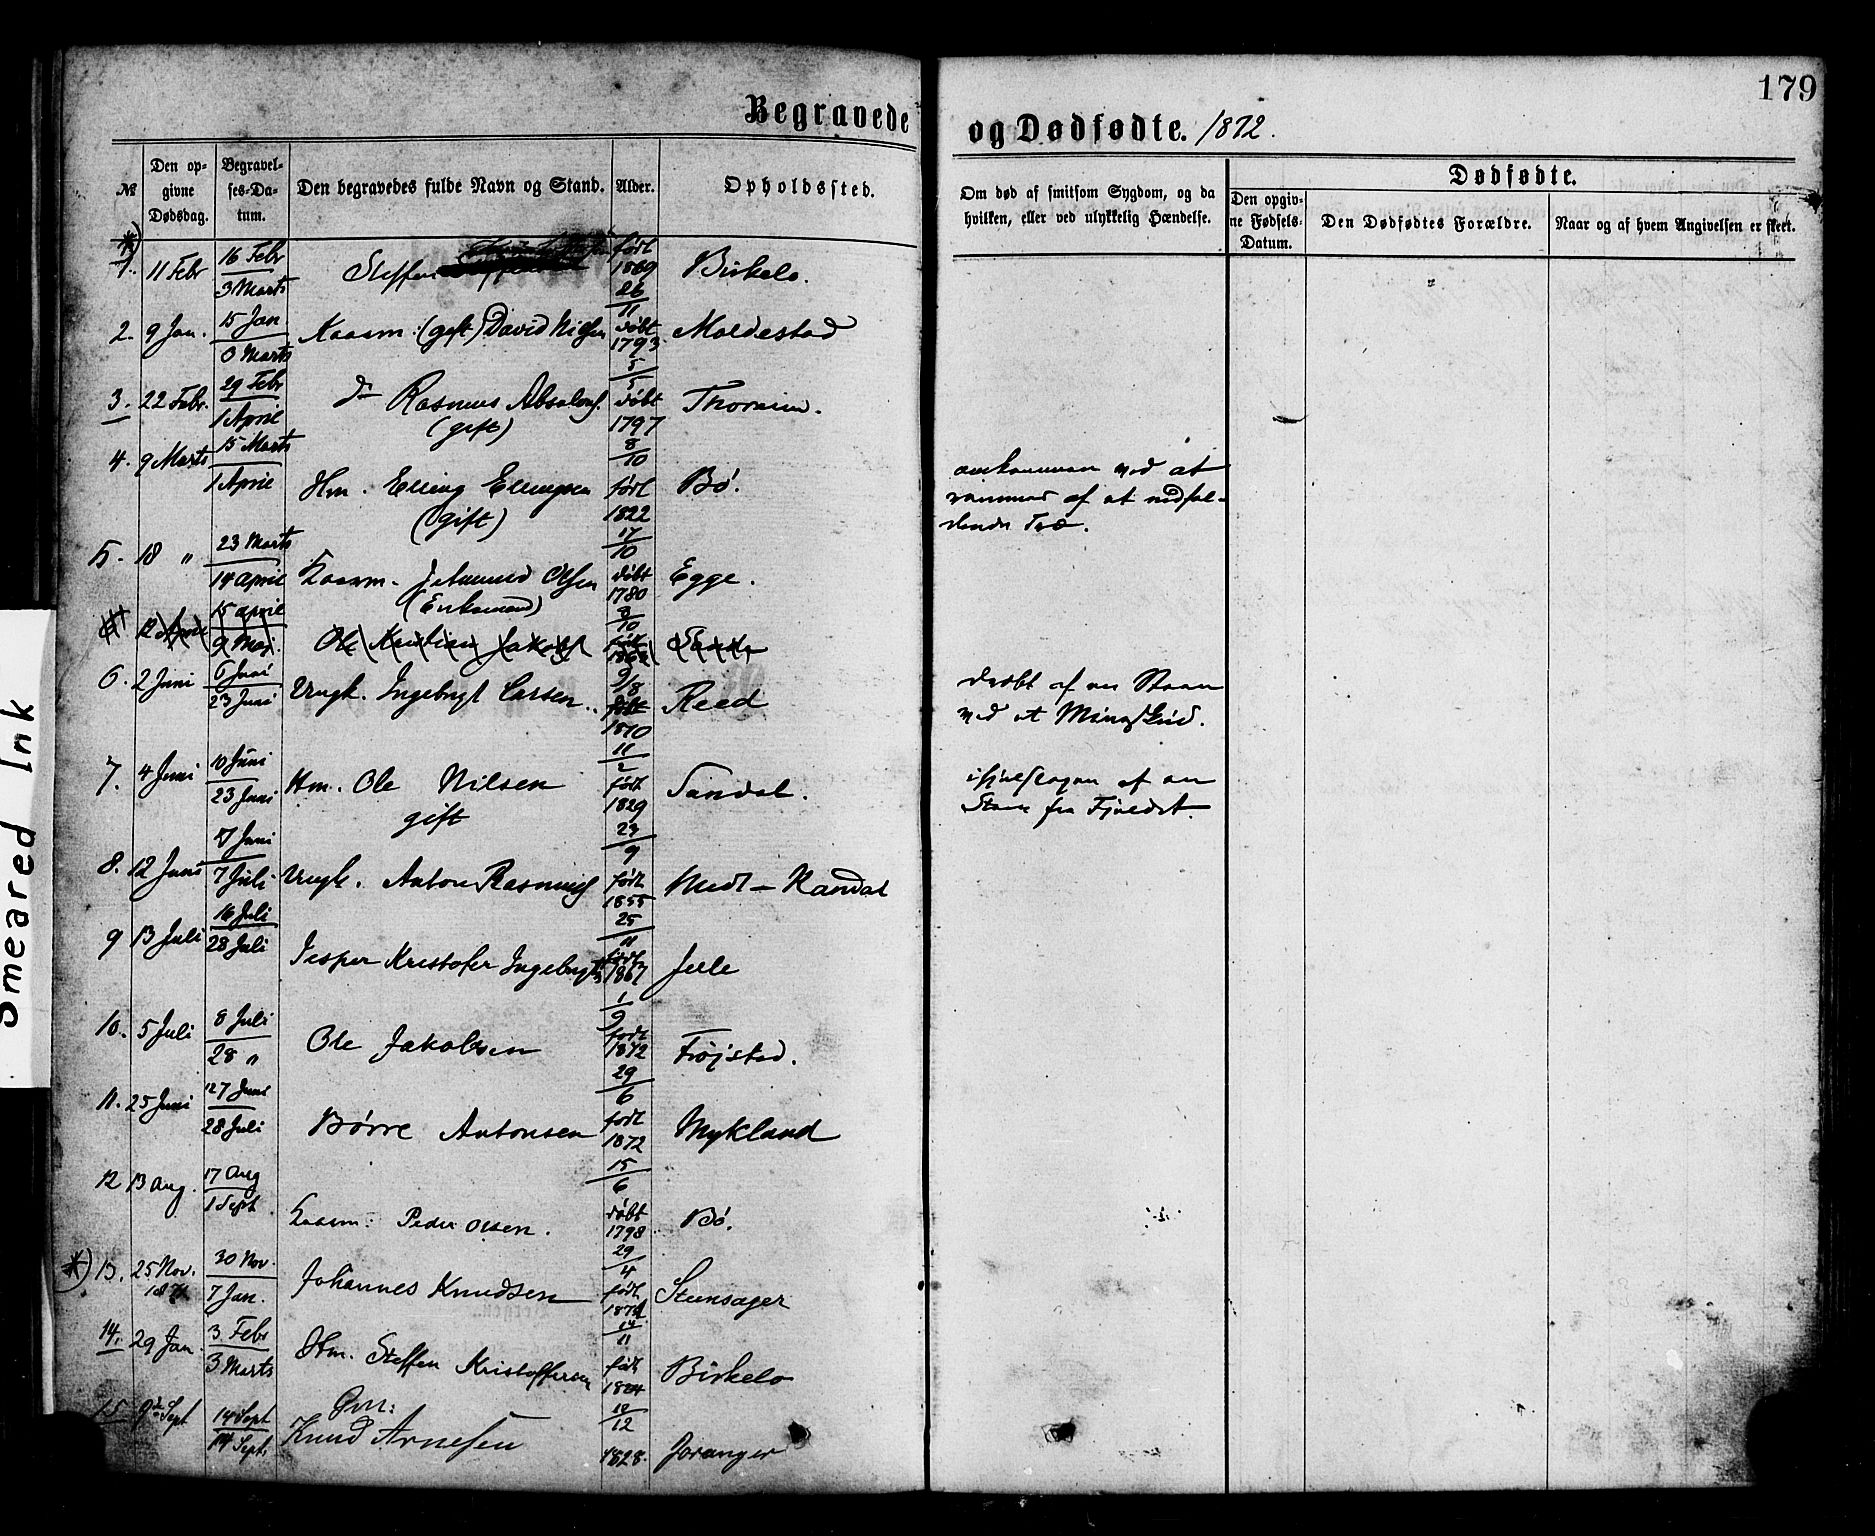 179
Begravede og Dødfødte. 1872.
№
Den opgivne Dødsdag.
Begravelses-Datum.
Den begravedes fulde Navn og Stand.
Alder.
Opholdssted.
Om død af smitsom Sygdom, og da hvilken, eller ved ulykkelig Hændelse.
Dødfødte.
Den opgivne Fødsels-Datum.
Den Dødfødtes Forældre.
Naar og af hvem Angivelsen er skeet.
*) 1. 11 Febr 16 Febr 3 Marts Steffen født 1869 26/11 Birkelo.
2. 9 Jan. 15 Jan 3 Marts Kaarm. (gift) David Nilsen døbt 1793 5/5 Moldestad
3. 22 Febr. 29 Febr 1 April do Rasmus Absalons. (gift) døbt 1797 8/10
4. 9 Marts 15 Marts 1 April Hm. Elling Ellingsen (gift) født 1822 17/10 Bø. omkommen ved at rammes af et nedfaldende Træ.
5. 18 " 23 Marts 14 April Kaarm. Olsen (Enkemand) døbt 1780 8/10 Egge.
12 April 15 April 9 Maj. Ole Kristian Jakobs født
6. 2 Juni 6 Juni 23 Juni Ungk. Ingebrigt Larsen. født 1870 11/2 Reed dræbt af en Steen ved et Mineskud.
7. 4 Juni 10 Juni 23 Juni Hm. Ole Nilsen gift født 1829 23/9 Sandal. ihjelslagen af en Steen fra Fjeldet.
8. 12 Juni 17 Juni 7 Juli Ungk. Anton Rasmuss født 1855 25/11 Medt-Kandal
9 13 Juli 16 Juli 28 Juli Jesper Kristofer Ingebrigts født 1867 1/9 Jelle
10. 5 Juli 8 Juli 28 " Ole Jakobsen født 1872 29/6 Frøjstad.
11. 25 Juni 27 Juni 28 Juli Børre Antonsen født 1872 15/6 Mykland
12 13 Aug. 17 Aug 1 Sept Kaarm: Peder Olsen. døbt 1798 29/4 Bø.
*) 13. 25 Nov. 1871 30 Nov. 7 Jan. Johannes Knudsen født 1871 14/11 Steensager
14. 29 Jan. 3 Febr 3 Marts Hm. Steffen Kristoffersen født 1824 10/12 Birkelo
15 9de Sept 14 Sept 14 Sept. Gm: Knud Arnesen 1828. Joranger
Smeared Ink